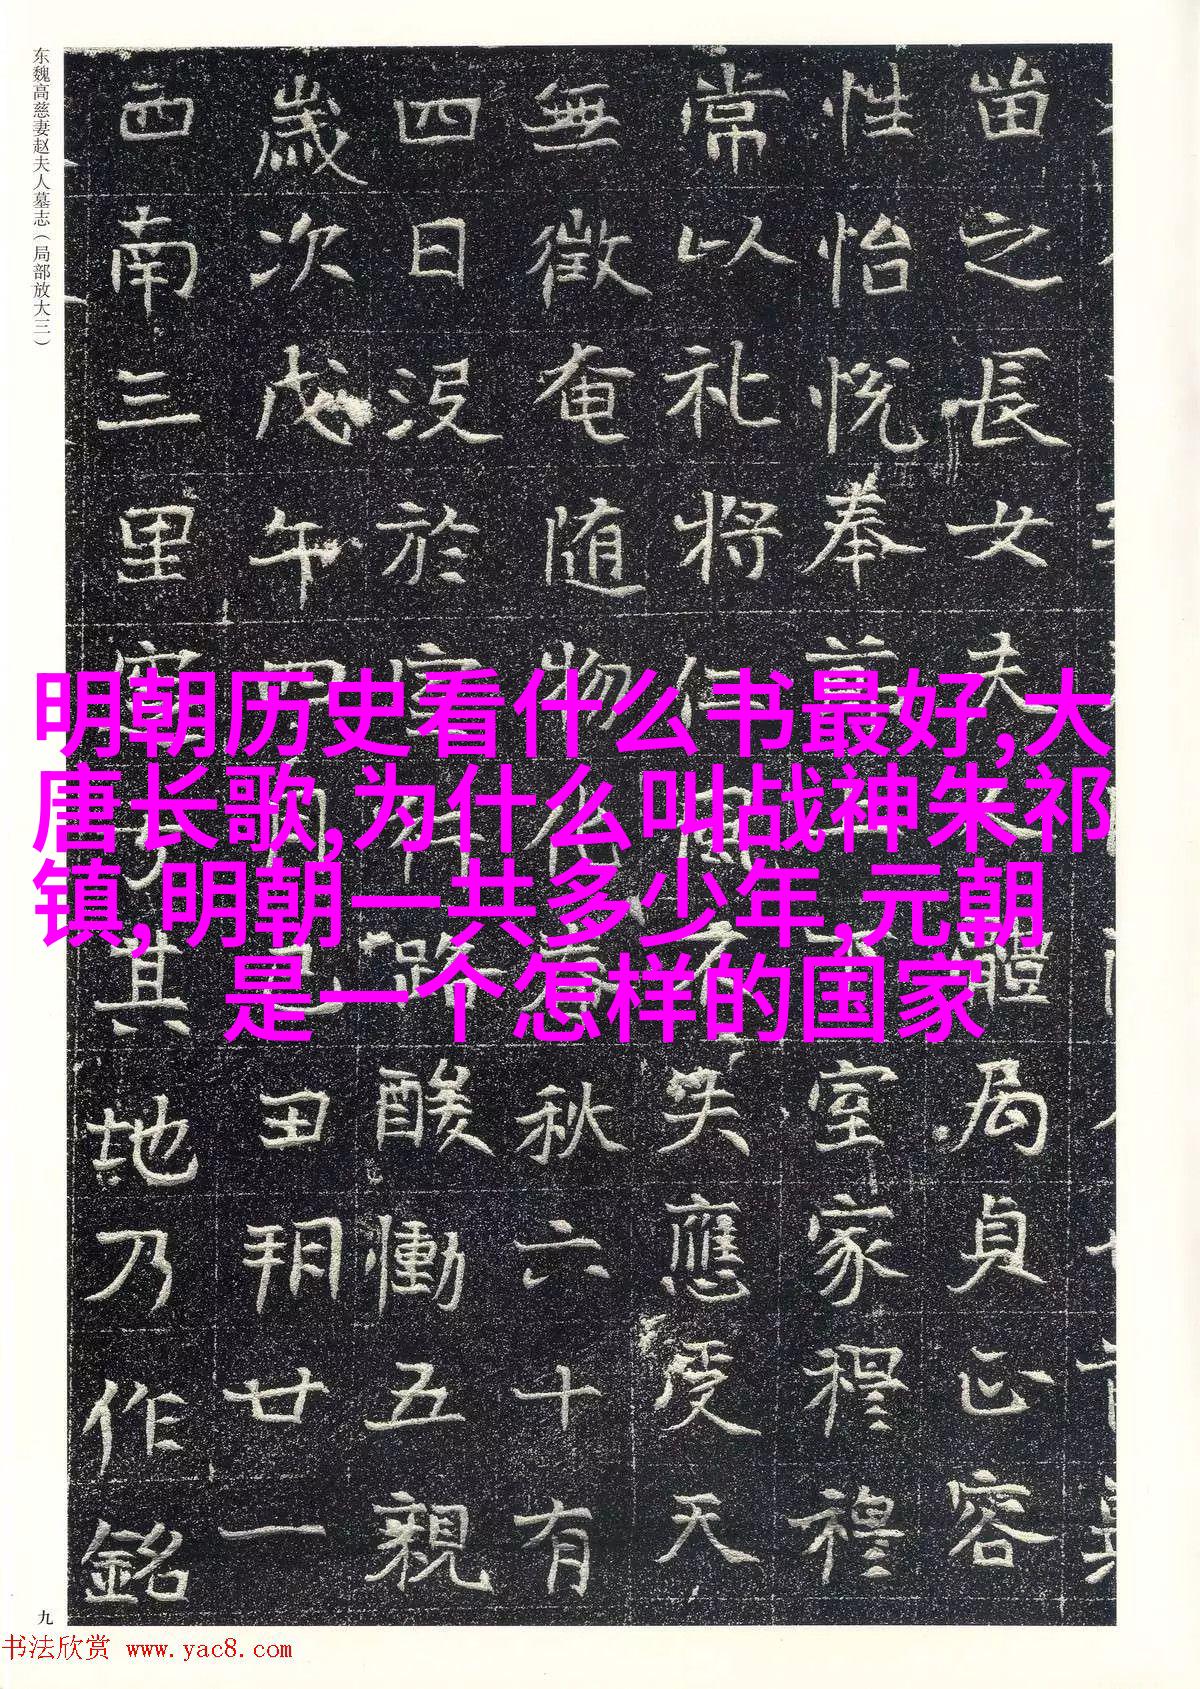 东魏高慈妻赵夫人墓志（局部放大三）
苗之長女夫體局貞正容
性怡悅奉室家穆穆
常以礼将仁風失應受天
無徵奄随物化春秋六十有
四日没於室酸慟五親
歲次戊午四月己丑朔廿一
西南三里其地乃作銘
明朝历史看什么书最好,大
唐长歌,为什么叫战神朱祁
镇,明朝一共多少年,元朝
是一个怎样的国家
九
书法欣赏 www.yac8.com